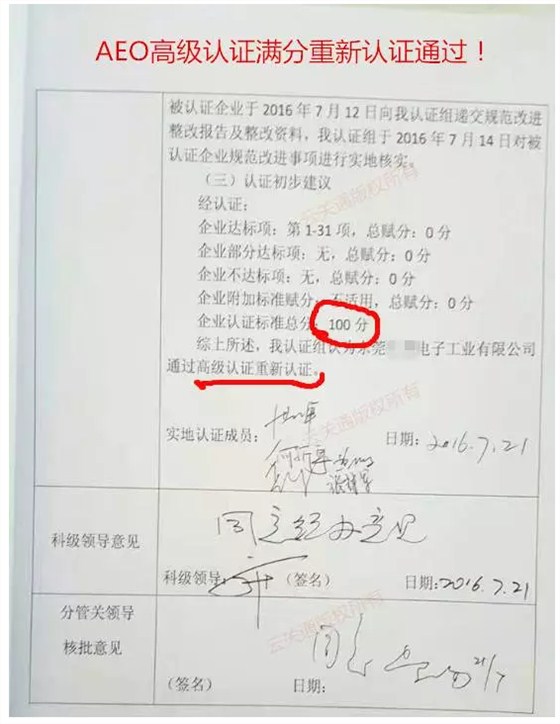 AEO高级认证满分重新认证通过！
被认证企业于 2016 年 7 月 12 日向我认证组递交规范改进
整改报告及整改资料，我认证组于 2016 年 7 月 14 日对被
认证企业规范改进事项进行实地核实。
（三）认证初步建议
经认证：
企业达标项：第 1-31 项，总赋分：0 分
企业部分达标项：无，总赋分：0 分
企业不达标项：无，总赋分：0 分
企业附加标准赋分：不适用，总赋分：0 分
企业认证标准总分：100 分
综上所述，我认证组认为东莞 电子工业有限公司
通过高级认证重新认证。
实地认证成员：
日期：2016.7.21
同意经办意见
科级领导意见
科级领导： （签名） 日期：2016.7.21
分管关领导
核批意见
同意 21/7
（签名） 日期：
云关通版权所有
云关通版权所有
云关通版权所有